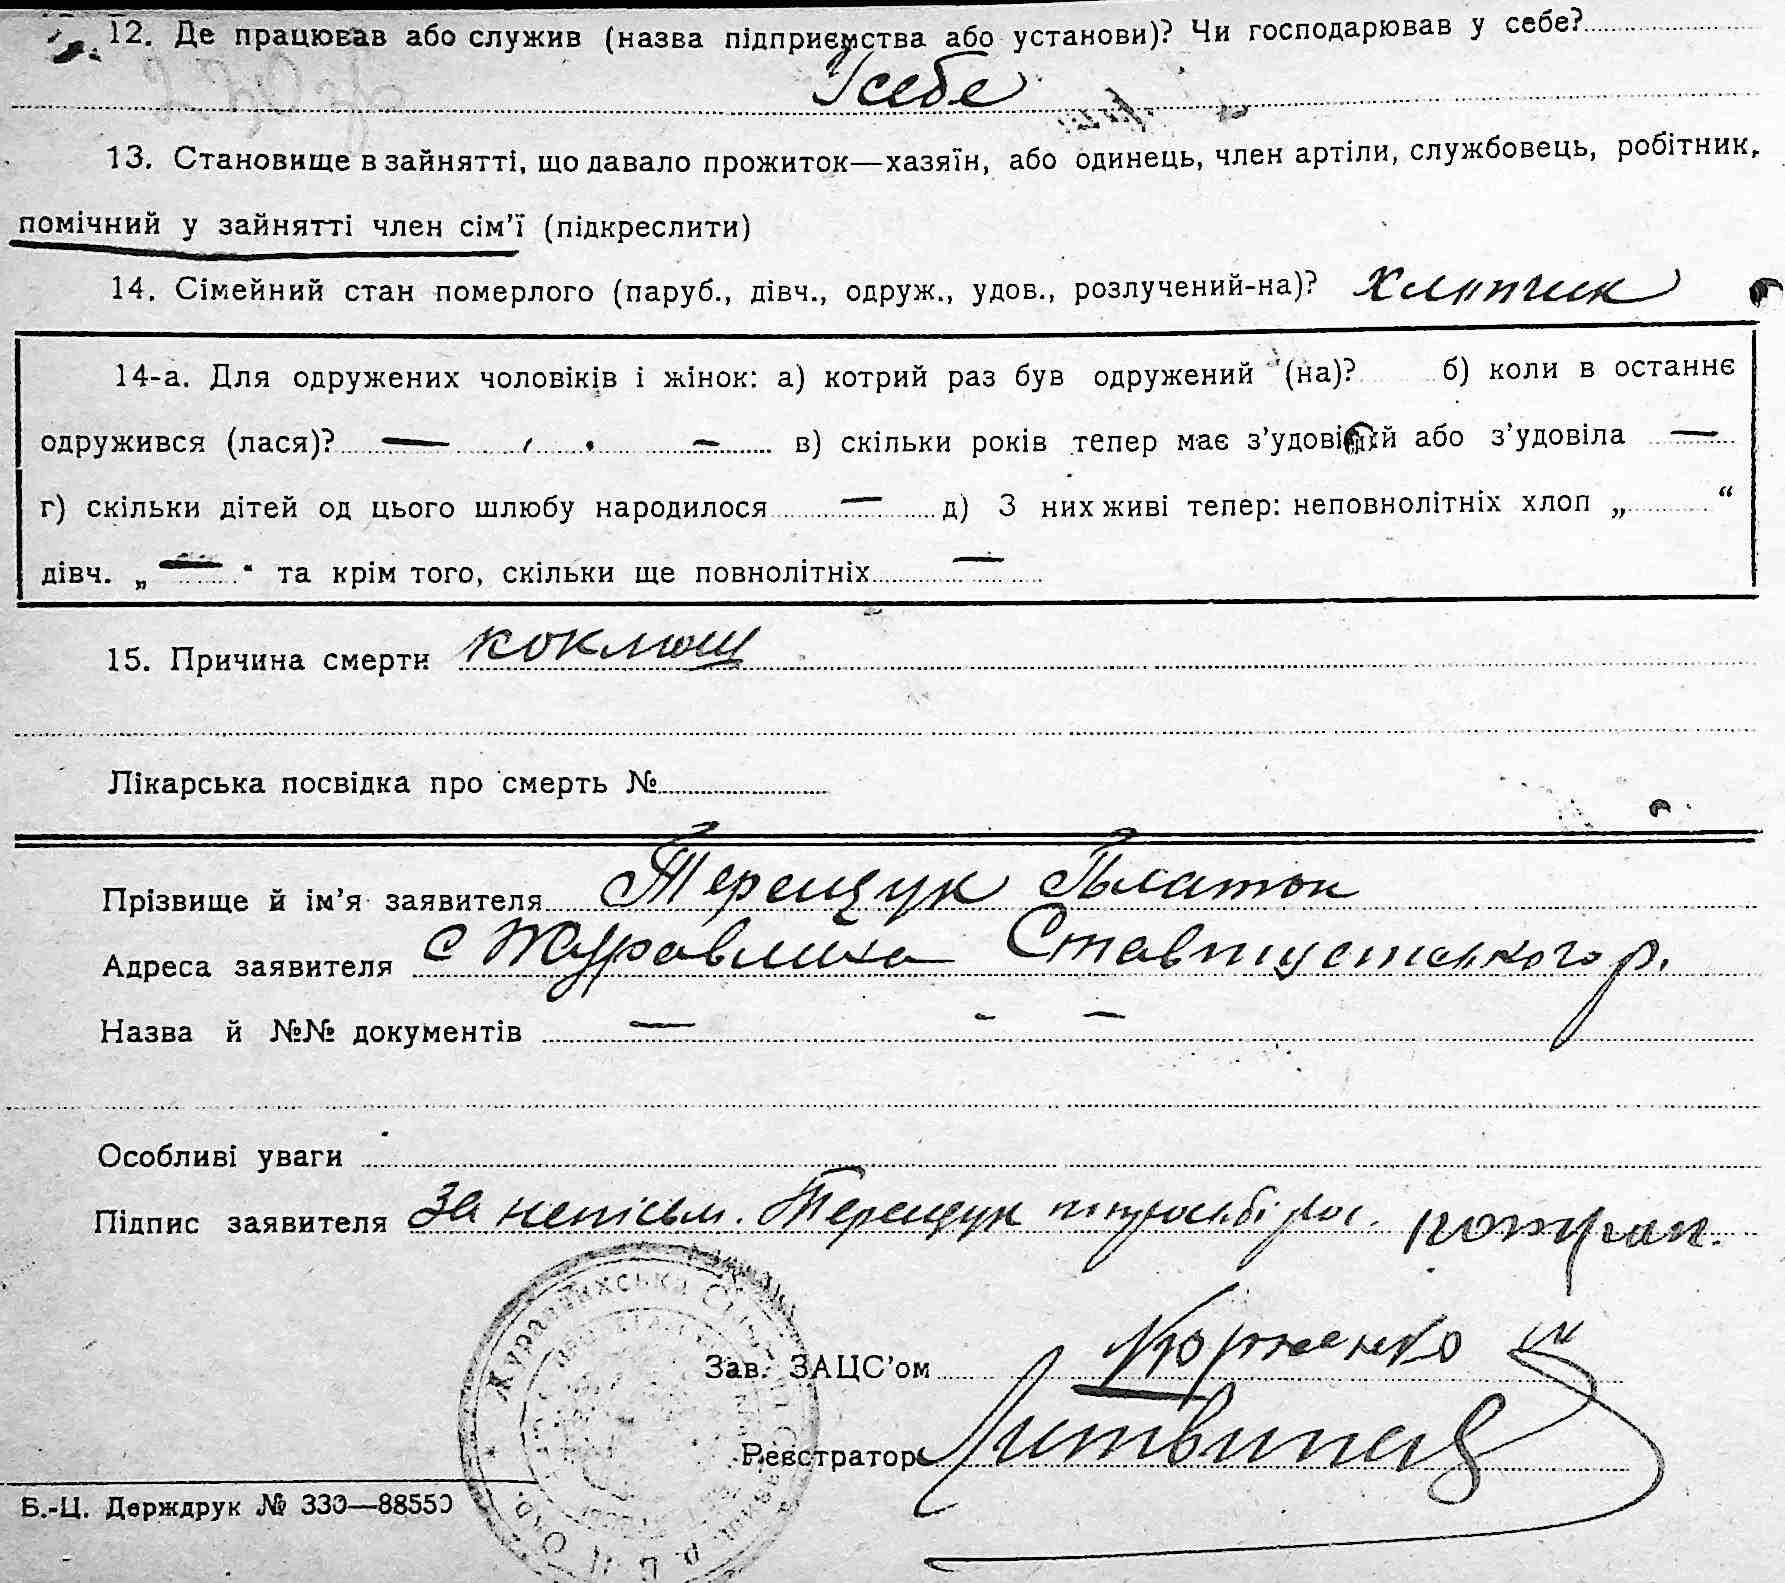 12. Де працював або служив (назва підприємства або установи)? Чи господарював у себе?
У себе
13. Становище в зайнятті, що давало прожиток—хазяїн, або одинець, член артіли, службовець, робітник,
помічний у зайнятті член сім'ї (підкреслити)
14. Сімейний стан померлого (паруб., дівч., одруж., удов., розлучений-на)? Хлопчик
14-а. Для одружених чоловіків і жінок: а) котрий раз був одружений (на)? б) коли в останнє
одружився (лася)? — — в) скільки років тепер має з'удовілий або з'удовіла —
г) скільки дітей од цього шлюбу народилося — д) З них живі тепер: неповнолітніх хлоп „ “
дівч. „ — “ та крім того, скільки ще повнолітніх —
15. Причина смерти коклюш
Лікарська посвідка про смерть №
Прізвище й ім'я заявителя Терещук Платон
Адреса заявителя с Журавлиха Ставищенського р.
Назва й №№ документів — - —
Особливі уваги
Підпис заявителя За непісьм. Терещук
Журавлихська
Зав. ЗАЦС'ом Корженко
Реєстратор Литвинец
Б.-Ц. Держдрук № 330—88550